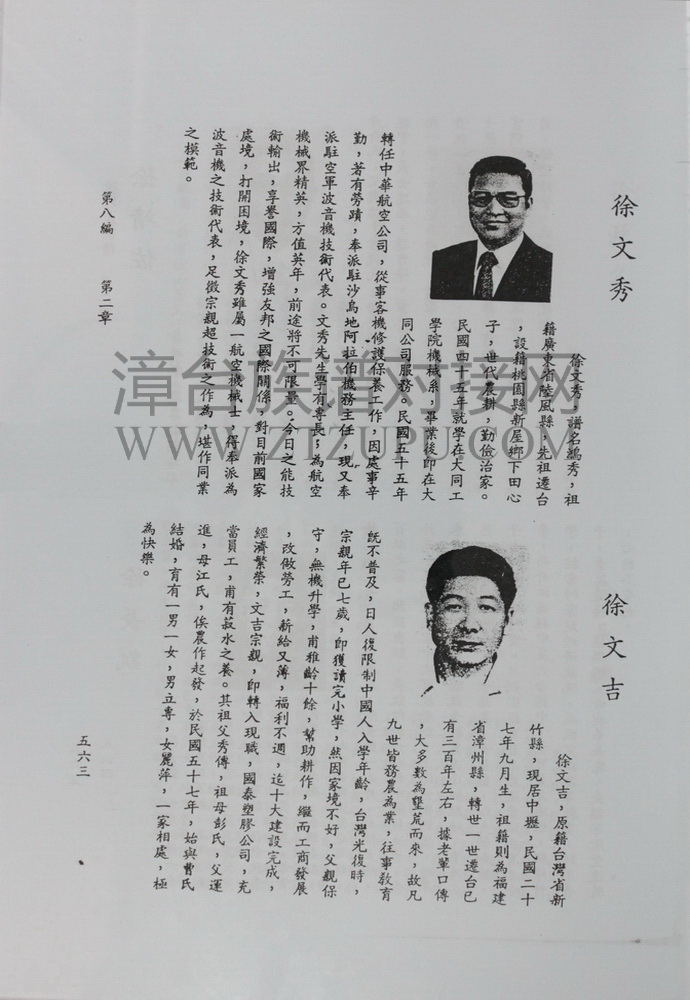 徐文秀
徐文秀，譜名鴻秀，祖
籍廣東省陸風縣，先祖遷台
，設籍桃園縣新屋鄉下田心
子，世代農耕，勤儉治家。
民國四十五年就學在大同工
學院機械系，畢業後即在大
同公司服務。民國五十五年
轉任中華航空公司，從事客機修護保養工作，因處事辛
勤，著有勞蹟，奉派駐沙烏地阿拉伯機務主任，現又奉
派駐空軍波音機技術代表。文秀先生學有專長，為航空
機械界精英，方值英年，前途將不可限量。今日之能技
術輸出，享譽國際，增強友邦之國際關係，對目前國家
處境，打開困境，徐文秀雖屬一航空機械士，得奉派為
波音機之技術代表，足徵宗親超技術之作為，堪作同業
之模範。
徐文吉
徐文吉，原籍台灣省新
竹縣，現居中壢，民國二十
七年九月生，祖籍則為福建
省漳州縣，轉世一世遷台已
有三百年左右，據老輩口傳
，大多數為墾荒而來，故凡
九世皆務農為業，往事教育
既不普及，日人復限制中國人入學年齡，台灣光復時，
宗親年已七歲，即獲讀完小學，然因家境不好，父親保
守，無機升學，甫稚齡十餘，幫助耕作，繼而工商發展
，改做勞工，薪給又薄，福利不週，迨十大建設完成，
經濟繁榮，文吉宗親，即轉入現職，國泰塑膠公司，充
當員工，甫有菽水之養。其祖父秀傳，祖母彭氏，父運
進，母江氏，俟農作起發，於民國五十七年，始與曹氏
結婚，育有一男一女，男立專，女麗萍，一家相處，極
為快樂。
第八編 第二章
五六三
漳台族谱对接网
WWW.ZTZUPU.COM